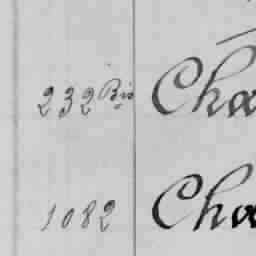 232 Bis Cha
1082 Cha